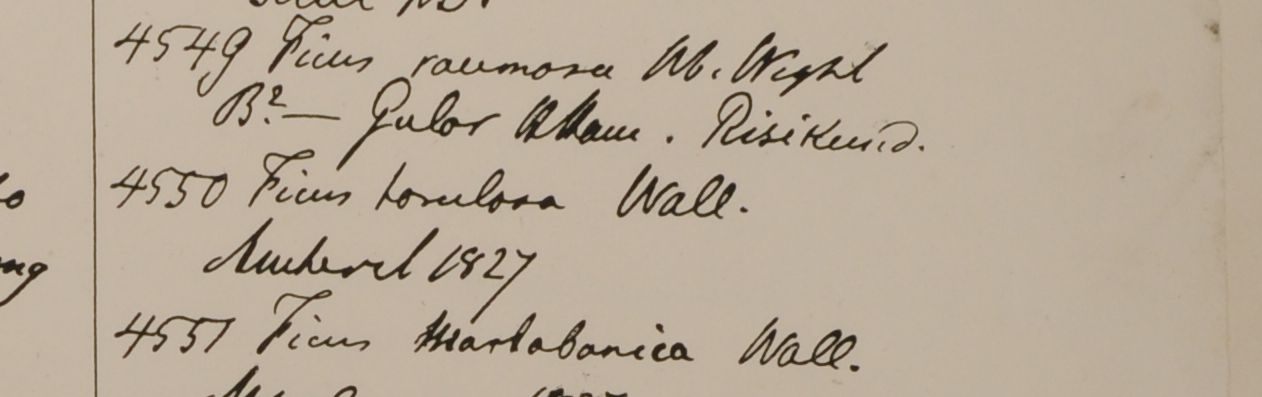 4549 Ficus racemosa Hb. Wight
B? — Gular Ham. Risikund.
4550 Ficus torulosa Wall.
Amherst 1827
4551 Ficus Martabanica Wall.